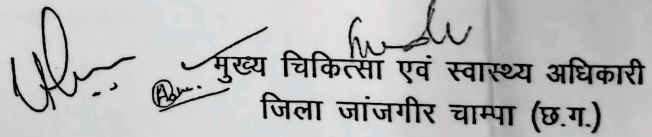 मुख्य चिकित्सा एवं स्वास्थ्य अधिकारी
जिला जांजगीर चाम्पा (छ.ग.)